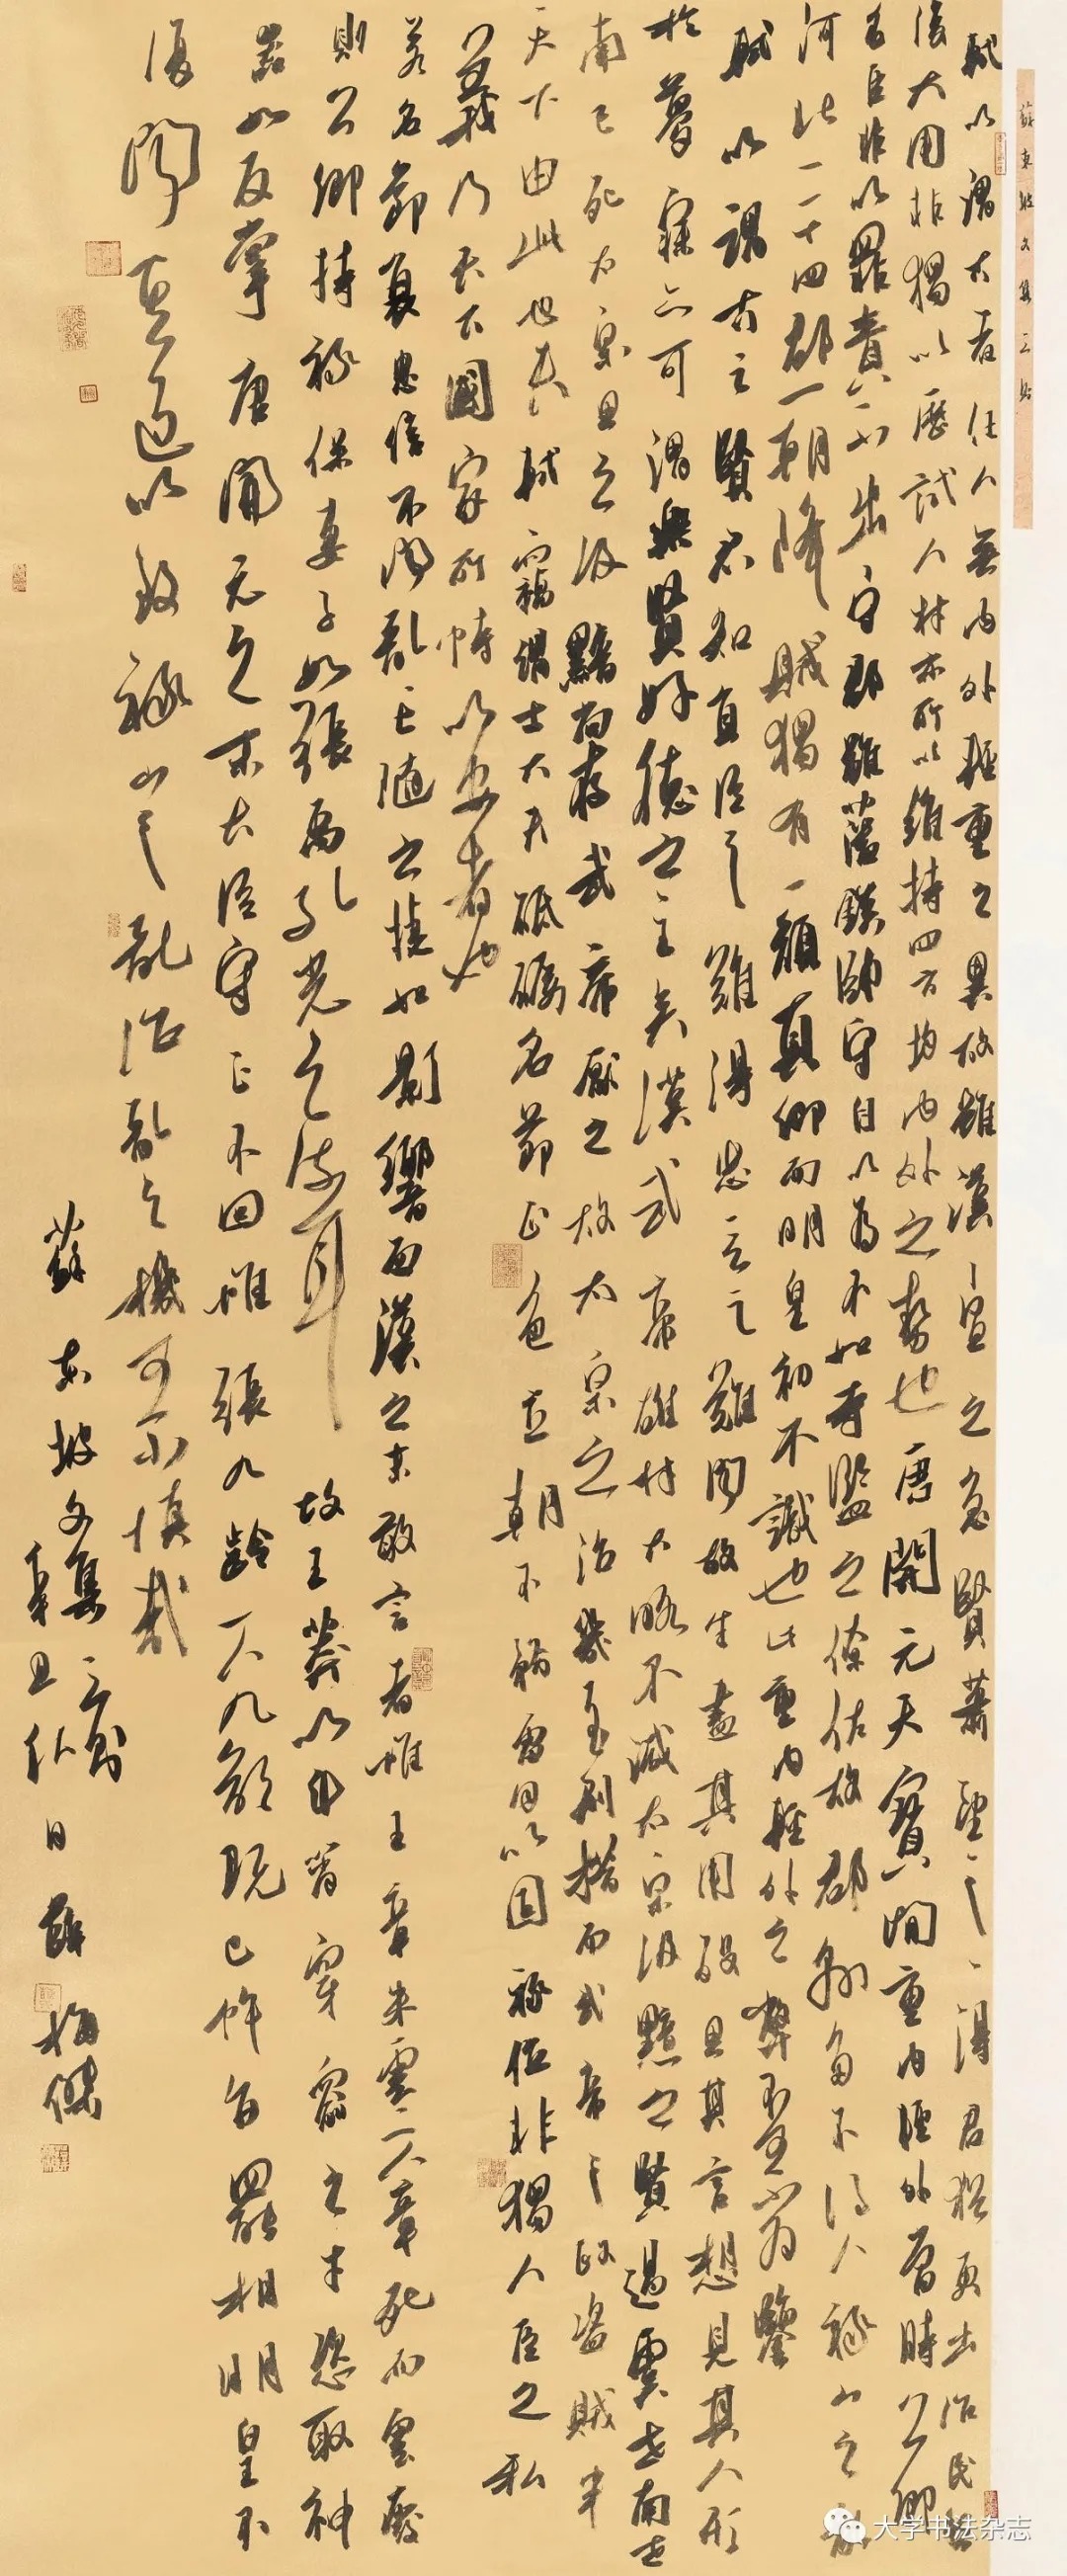 蘇東坡文集三則
軾以謂古者任人無內外輕重之異故雖漢宣之急賢蕭望之之得君猶更出治民然
後大用非獨以歷試人材亦所以維持四方均內外之勢也唐開元天寶間重內輕外當時公卿
名臣非以罪責不出守郡雖藩鎮帥守自以為不如寺監之僚佐故郡縣多不得人祿山之亂
河北二十四郡一朝降賊獨有一顏真卿而明皇初不識也此重內輕外之弊不可不為鑒
軾以謂古之賢君知直臣之難得忠言之難聞故生盡其用歿思其言想見其人形
於夢寐亦可謂樂賢好德之主矣漢武帝雄材大略不減太宗汲黯之賢過虞世南世
南已死太宗思之汲黯尚存武帝厭之故太宗之治幾至刑措而武帝之政盜賊半
天下由此也夫軾竊謂士大夫砥礪名節正色立朝不務雷同以固祿位非獨人臣之私
義乃天下國家所恃以安者也
若名節衰忠信不聞亂亡隨之捷如影響西漢之末敢言者惟王章朱雲二人章死而雲廢
則公卿持祿保妻子如張禹孔光之流耳故王莽以斗筲穿窬之才恣取神
器如反掌唐開元之末大臣守正不回惟張九齡一人九齡既已忤旨罷相明皇不
復聞其過以致祿山之亂治亂之機可不慎哉
蘇東坡文集三則
日薛
楊傑
大学书法杂志